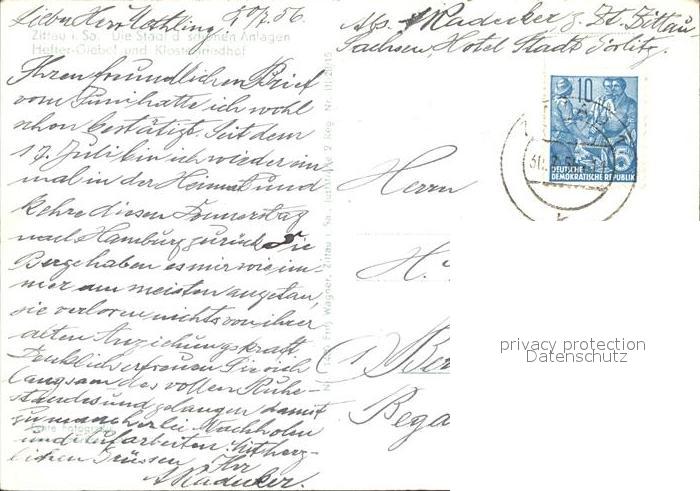 Lieber Herr 29/7.56
Zittau i. Sa. Die Stadt d. schönen Anlagen
Hefter-Giebel und Klosterfriedhof
Ihren freundlichen Brief
vom Juni hatte ich wohl
schon bestätigt. Seit dem
17. Juli bin ich wieder ein
mal in der Heimat und
kehre diesen Donnerstag
nach Hamburg zurück. Die
Berge haben es mir wie im-
mer am meisten angetan,
sie verloren nichts von ihrer
alten Anziehungskraft.
Hoffentlich erfreuen Sie sich
langsam des vollen Ruhe-
standes und gelangen damit
zu mancherlei Nachholen
und Aufarbeiten. Mit herz-
lichen Grüssen Ihr
A Radecker.
Echte Fotografie
Fritz Wagner, Zittau i. Sa.
Abs. A Radecker, z. Zt. Zittau
Sachsen, Hotel Stadt Görlitz.
10
5
DEUTSCHE
DEMOKRATISCHE REPUBLIK
Herrn
H.
(1) Ber
Bega
privacy protection
Datenschutz